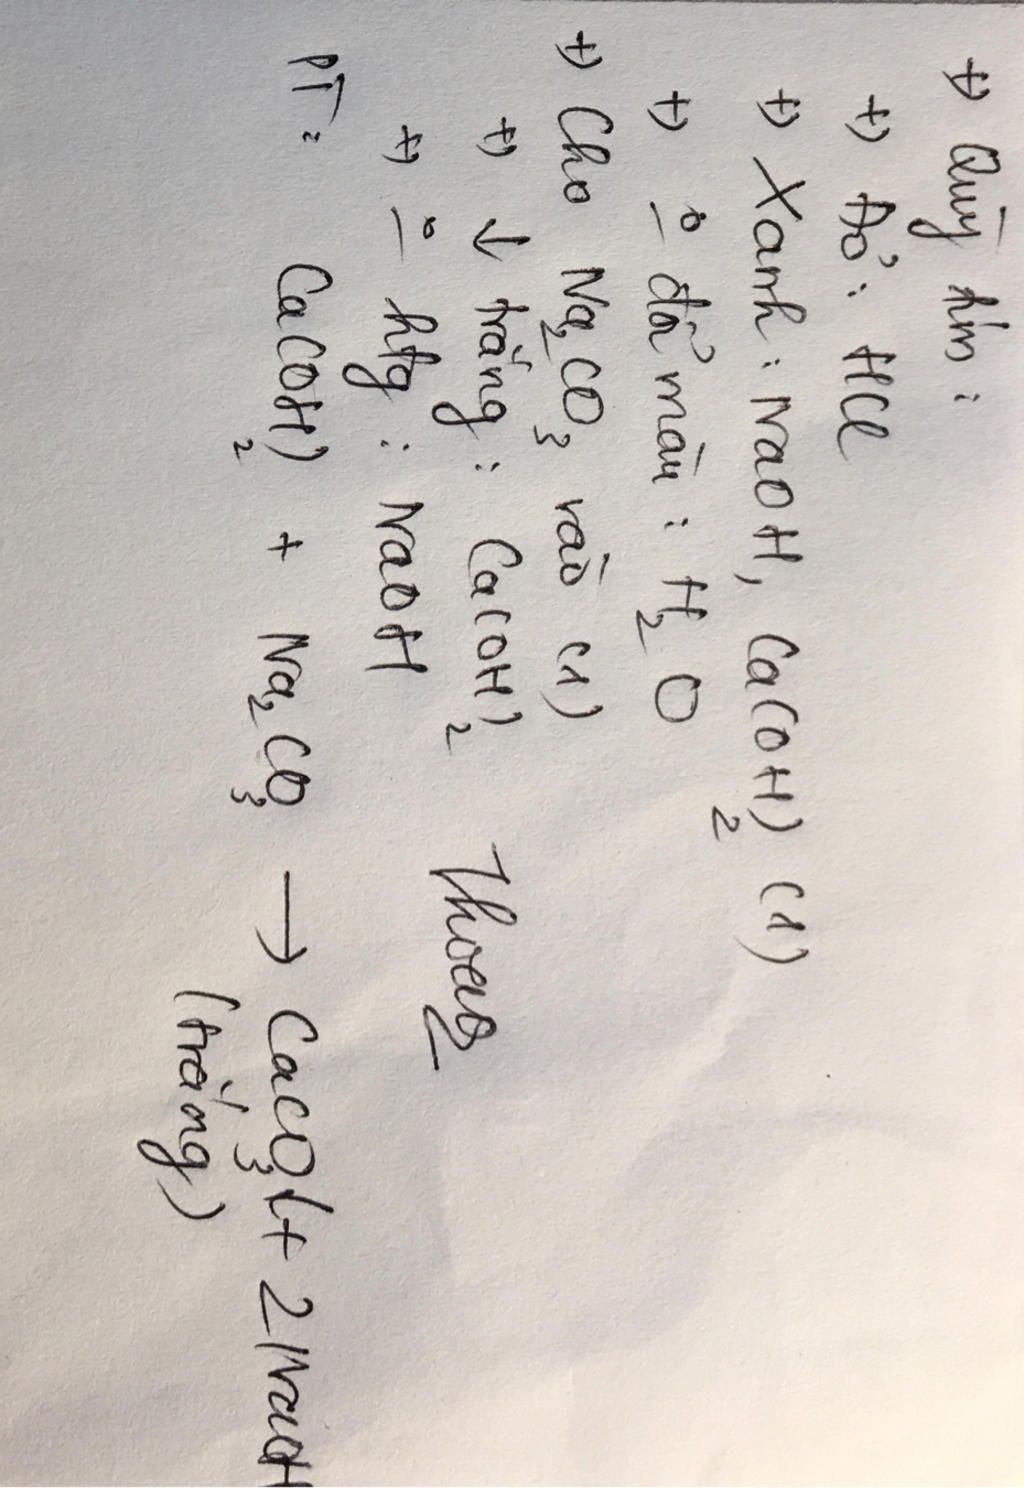 +) Quỳ tím:
+) Đỏ: HCl
+) Xanh: NaOH, Ca(OH)2 (1)
+) o đổi màu: H2O
+) Cho Na2CO3 vào (1)
+) ↓ trắng: Ca(OH)2
+) o htg: NaOH
PT: Ca(OH)2 + Na2CO3 → CaCO3↓ + 2NaOH
(trắng)